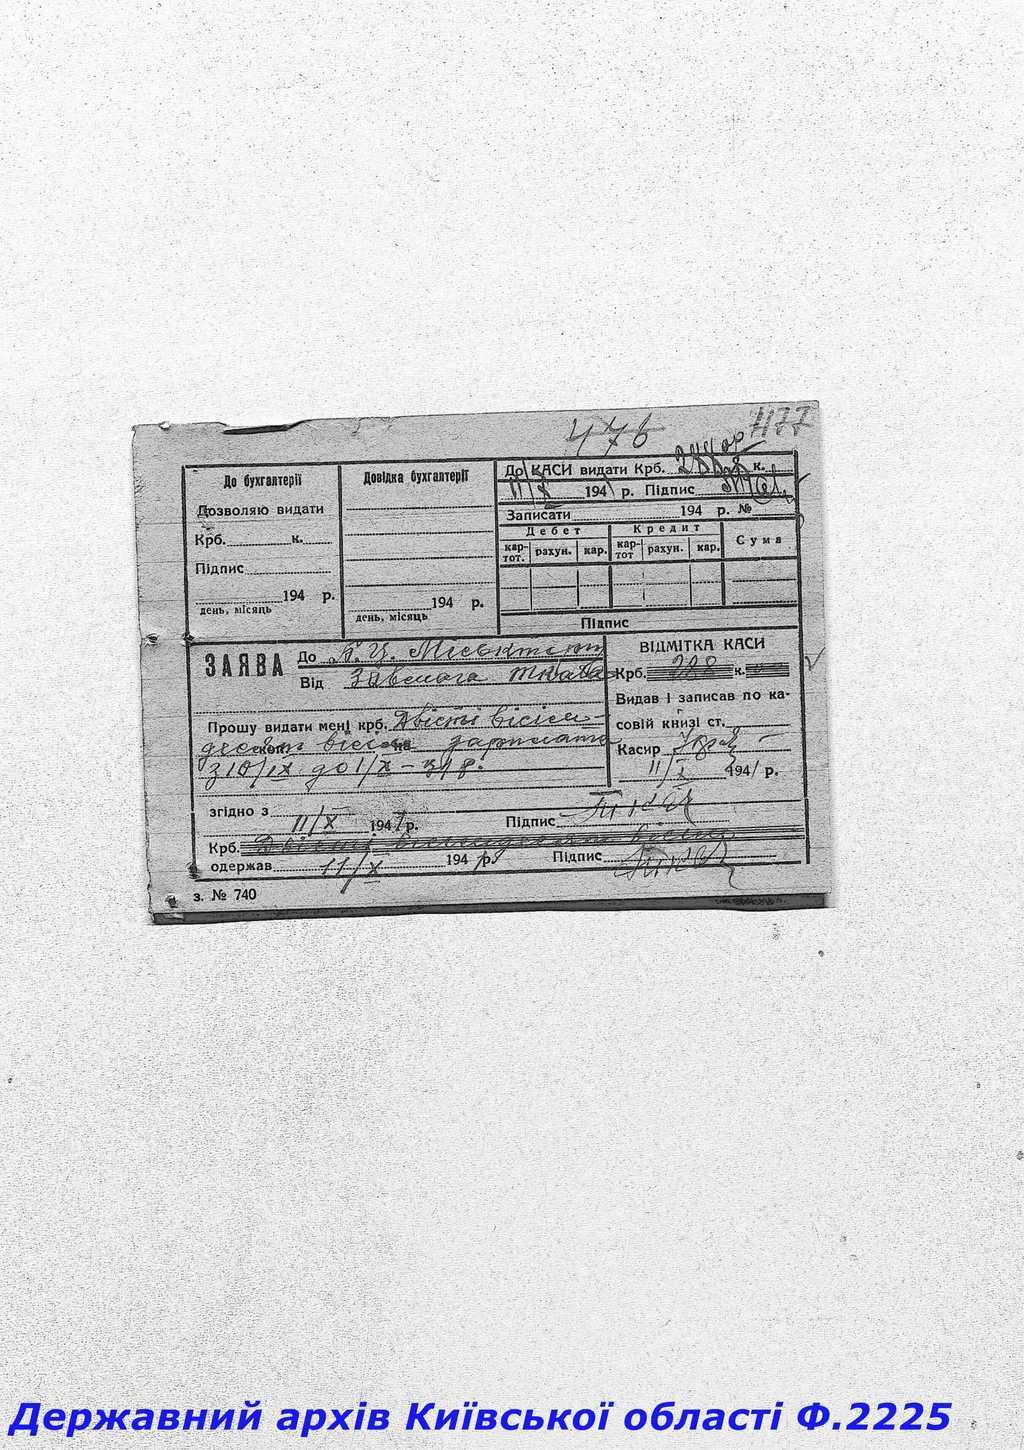 476 477
До бухгалтерії
Дозволяю видати
Крб. к.
Підпис
194 р.
день, місяць
Довідка бухгалтерії
194 р.
день, місяць
До КАСИ видати Крб. 288 к.
11/X 1941 р. Підпис
Записати 194 р. №
Дебет Кредит Сума
кар-тот. рахун. кар. кар-тот рахун. кар.
Підпис
ЗАЯВА До Б.Ц. Міськ
Від
Прошу видати мені крб. Двісті вісім-
десят вісім коп. на зарплата
з 10/IX до 1/X - 41р.
згідно з
11/X 1941 р. Підпис
Крб. Двісті вісімдесят вісім
одержав 11/X 194 р. Підпис
ВІДМІТКА КАСИ
Крб. 288 к.
Видав і записав по ка-
совій книзі ст.
Касир
11/X 1941 р.
з. № 740
Державний архів Київської області Ф.2225